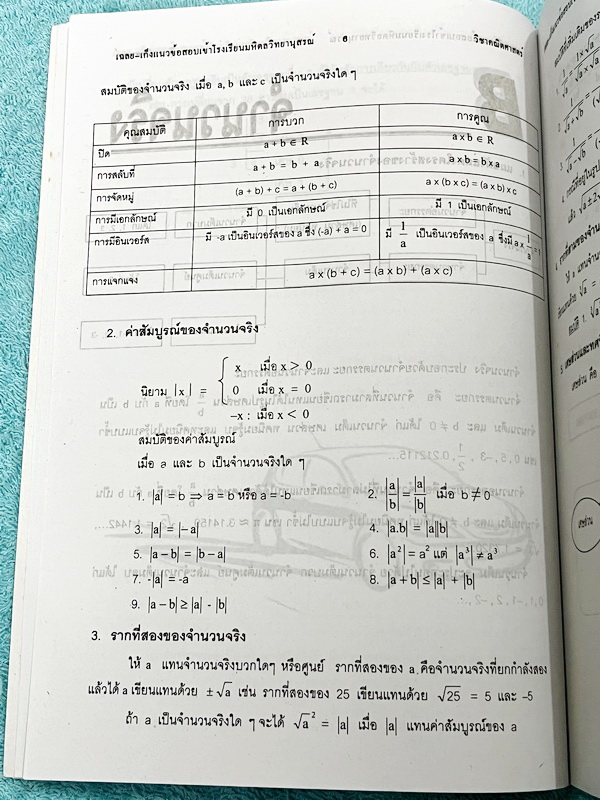 เฉลย-เก็งแนวข้อสอบเข้าโรงเรียนมหิดลวิทยานุสรณ์ 6 วิชาคณิตศาสตร์
สมบัติของจำนวนจริง เมื่อ a, b และ c เป็นจำนวนจริงใด ๆ
คุณสมบัติ การบวก การคูณ
ปิด a + b ∈ R a x b ∈ R
การสลับที่ a + b = b + a a x b = b x a
การจัดหมู่ (a + b) + c = a + (b + c) a x (b x c) = (a x b) x c
การมีเอกลักษณ์ มี 0 เป็นเอกลักษณ์ มี 1 เป็นเอกลักษณ์
การมีอินเวอร์ส มี -a เป็นอินเวอร์สของ a ซึ่ง (-a) + a = 0 มี 1/a เป็นอินเวอร์สของ a ซึ่งมี a x 1/a = 1
การแจกแจง a x (b + c) = (a x b) + (a x c)
2. ค่าสัมบูรณ์ของจำนวนจริง
x เมื่อ x > 0
นิยาม |x| = { 0 เมื่อ x = 0
-x : เมื่อ x < 0
สมบัติของค่าสัมบูรณ์
เมื่อ a และ b เป็นจำนวนจริงใด ๆ
1. |a| = b ⇒ a = b หรือ a = -b 2. |a/b| = |a|/|b| เมื่อ b ≠ 0
3. |a| = |-a| 4. |a.b| = |a||b|
5. |a - b| = |b - a| 6. |a²| = a² แต่ |a³| ≠ a³
7. -|a| = -a 8. |a + b| ≤ |a| + |b|
9. |a - b| ≥ |a| - |b|
3. รากที่สองของจำนวนจริง
ให้ a แทนจำนวนจริงบวกใดๆ หรือศูนย์ รากที่สองของ a คือจำนวนจริงที่ยกกำลังสอง
แล้วได้ a เขียนแทนด้วย ±√a เช่น รากที่สองของ 25 เขียนแทนด้วย √25 = 5 และ -5
ถ้า a เป็นจำนวนจริงใด ๆ จะได้ √a² = |a| เมื่อ |a| แทนค่าสัมบูรณ์ของ a